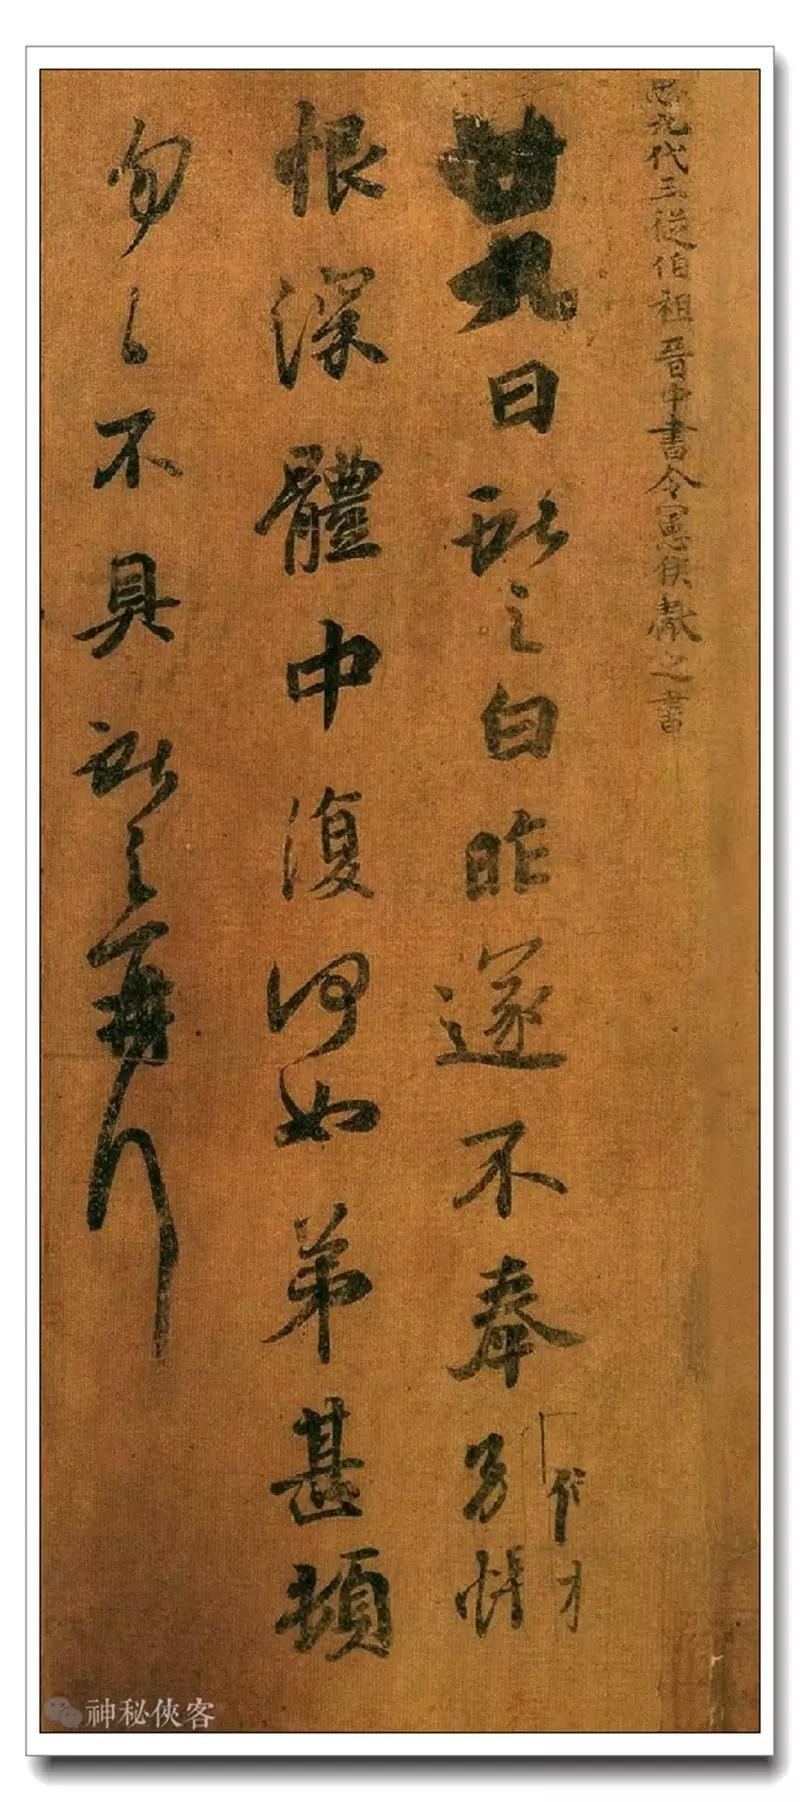 九代三從伯祖晉中書令憲侯獻之書
廿九日獻之白昨遂不奉別悵
恨深體中復何如弟甚頓
勿勿不具獻之再拜
神秘俠客